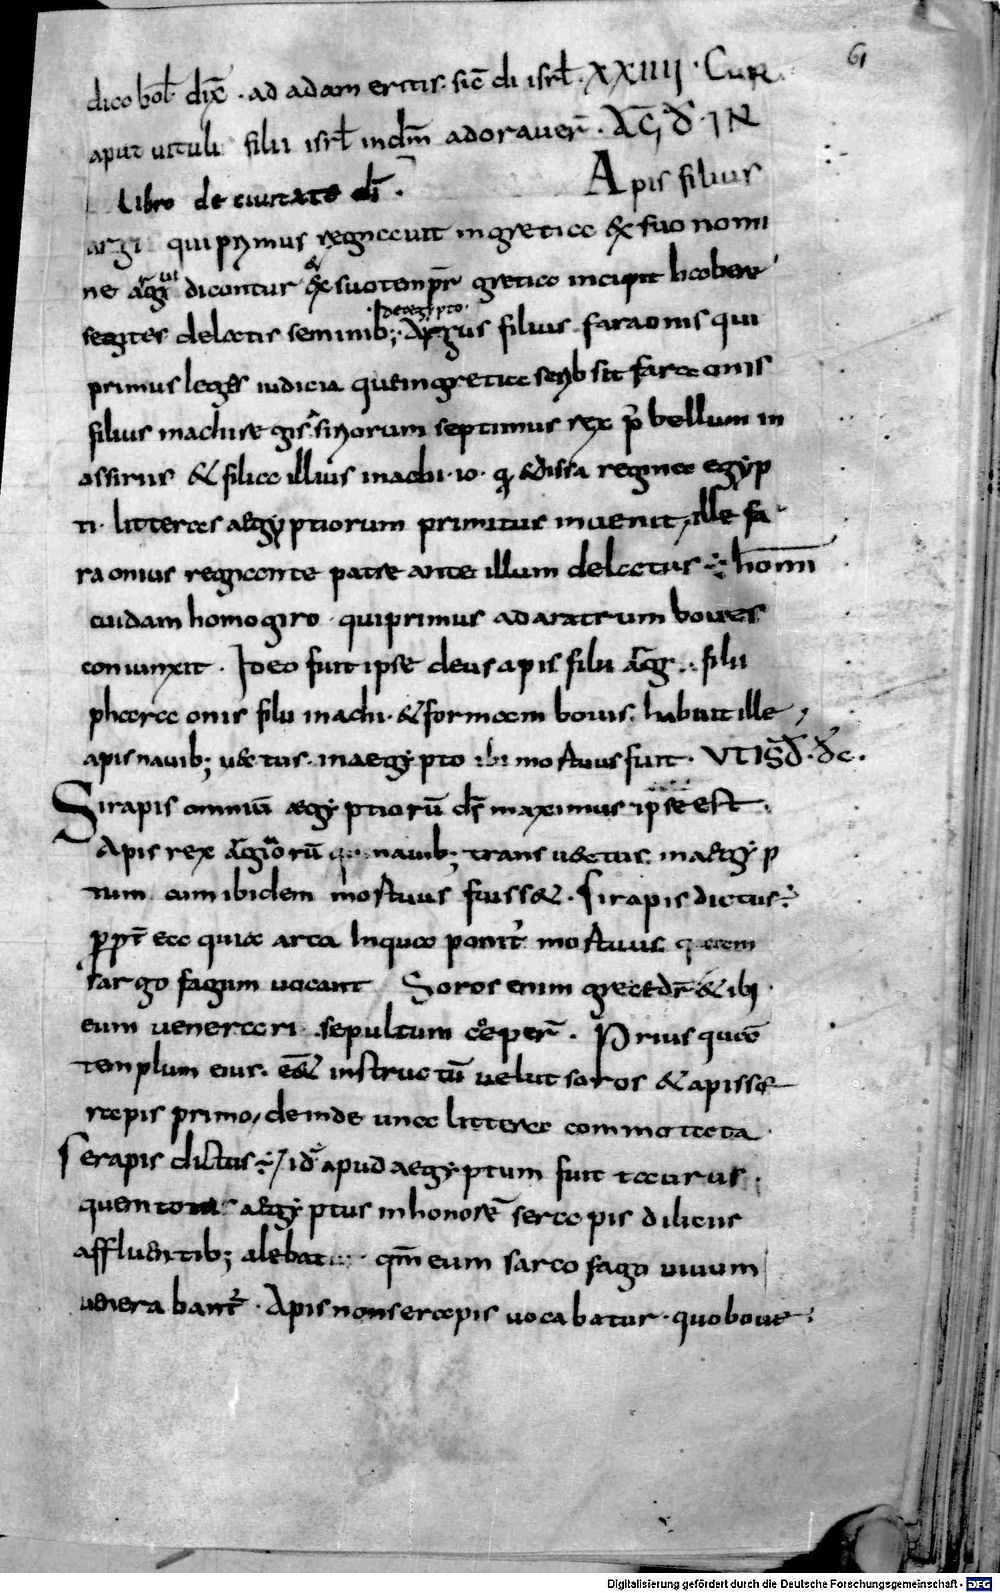 61
dico bol dix̅ · ad adam eritis · sic̅ di isrl̅ · XXIIII · Cur
aput uituli filii isrl̅ indm̅ adorauer̅ · AḠ D̄ · IN
Libro de ciuitate di̅ · Apis filius
argi qui primus regnauit in gretia & ex suo nomi
ne arg̅i dicontur & ex suo temp̅r gretia incipit habere
segites delectis seminib; · Argus filius faraonis qui
de aegypto
primus leges iudicia que in gretia scrybsit faraonis
filius machi regis sirorum septimus rex p̅ bellum in
assirius & filia illius inachi · io · q & issa regina egyp
ti · litteras aegyptiorum primitus inuenit, ille fa
raonius regnante patre ante illum delectus ÷ homi̅ni
cuidam homogiro · qui primus ad aratrum boues
coniunxit · Ideo fuit ipse deus apis filii arg̅ filii
pharaonis filii inachi · & formam bouis · habuit ille
apis nauib; uectus · in aegypto ibi mortuus fuit · UT ISD̄ · D̄c ·
Sirapis omniu̅ aegyptioru̅ ds̅ maximus ipse est ·
Apis rex arg̅ioru̅ nauib; trans uectus in aegyp
tum cum ibidem mortuus fuiss& · Sirapis dictus ÷
pp̅t ea quia arca In qua ponit̅ mortuus quam
sargofagum uocant Soros enim grece dr̅ & ibi
eum uenerari sepultum coeper̅ · Prius qua̅
templum eius · ee̅& instructu̅ uelut soros & apis so
rapis primo, deinde una littera commotata
Serapis dictus ÷ / id̅ apud aegyptum fuit taurus ·
quem totus aegyptus in honore̅ serapis diliciis
affluentib; alebat · qm̅ eum sarcofago uiuum
uenerabant̅ · Apis non serapis uocabatur · quo boue
Digitalisierung gefördert durch die Deutsche Forschungsgemeinschaft - DFG